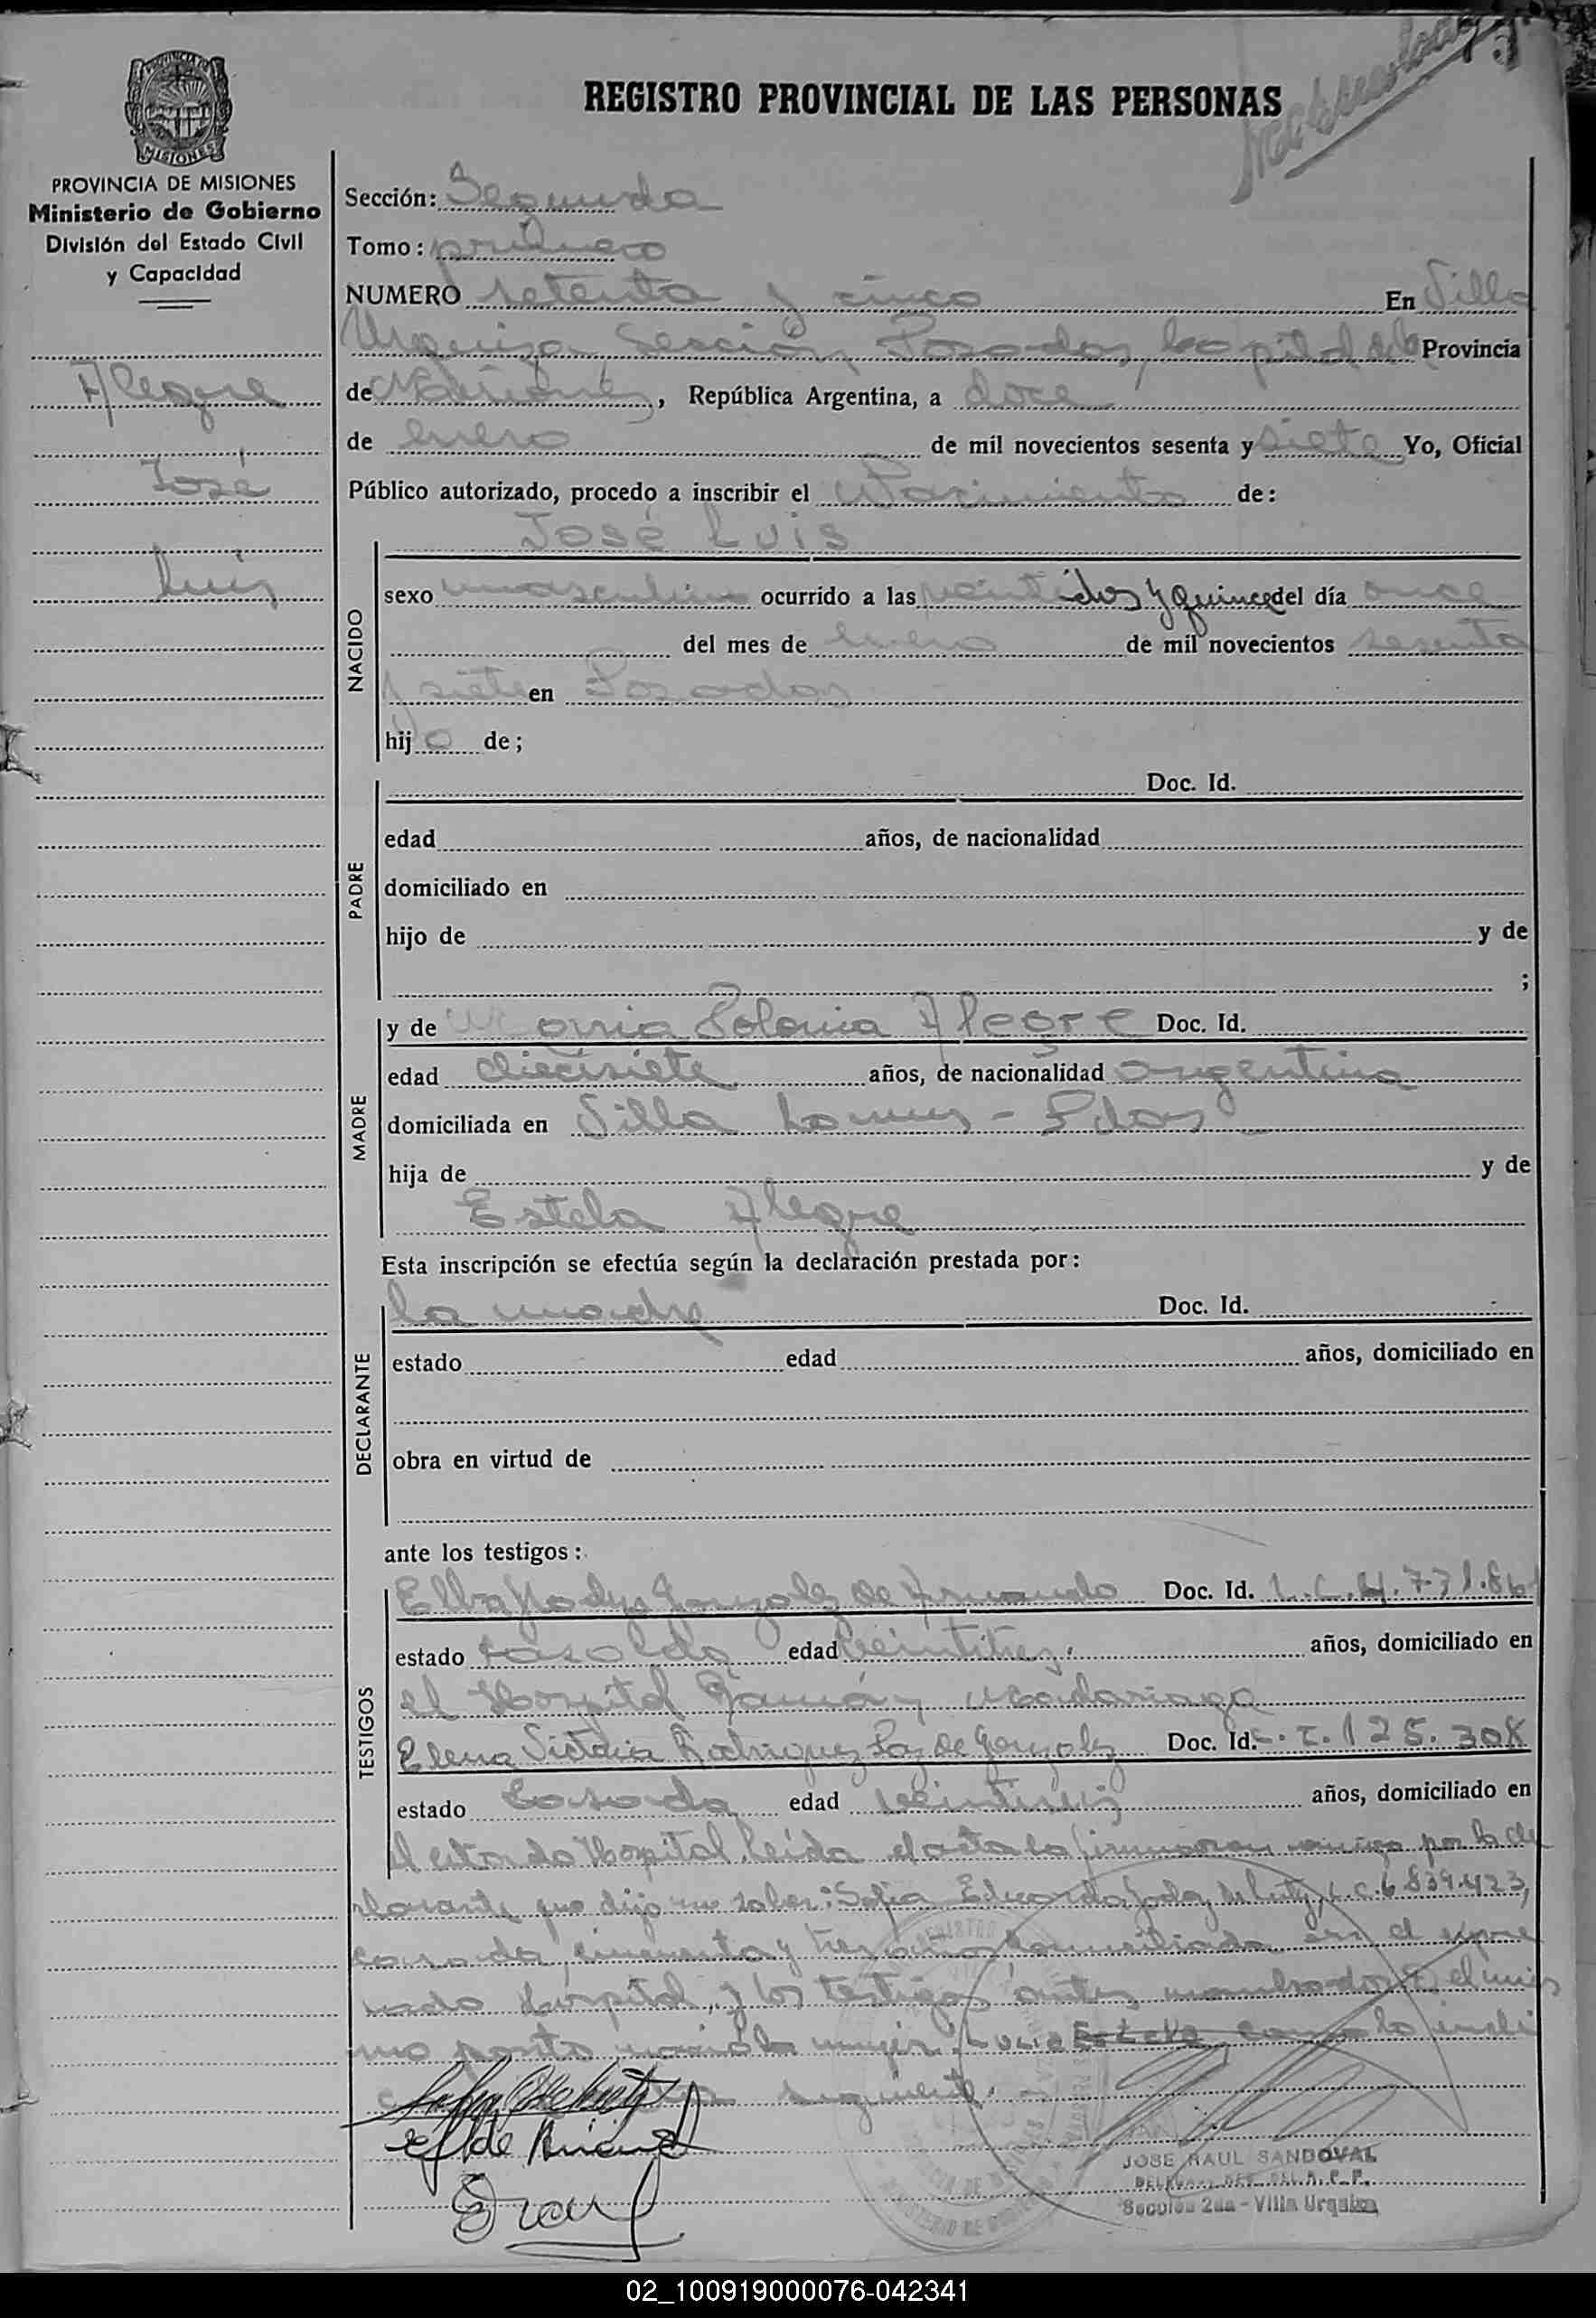 75
REGISTRO PROVINCIAL DE LAS PERSONAS
PROVINCIA DE MISIONES
Ministerio de Gobierno
División del Estado Civil
y Capacidad
Alegre
José
Luis
Sección: Segunda
Tomo: primero
NUMERO setenta y cinco En Villa
Urquiza Sección Posadas, capital de la Provincia
de Misiones, República Argentina, a doce
de enero de mil novecientos sesenta y siete Yo, Oficial
Público autorizado, procedo a inscribir el Nacimiento de:
José Luis
NACIDO
sexo masculino ocurrido a las veintidos y quince del día once
del mes de enero de mil novecientos sesenta
y siete en Posadas
hijo de;
PADRE
Doc. Id.
edad años, de nacionalidad
domiciliado en
hijo de y de
;
MADRE
y de María Polonia Alegre Doc. Id.
edad diecisiete años, de nacionalidad argentina
domiciliada en Villa Lanus - Pdas
hija de y de
Estela Alegre
Esta inscripción se efectúa según la declaración prestada por:
DECLARANTE
la madre Doc. Id.
estado edad años, domiciliado en
obra en virtud de
ante los testigos:
TESTIGOS
Elba Gladys Gonzalez de Doc. Id. L.C. 4.731.861
estado casada edad veintitrez años, domiciliado en
el Hospital Ramón Madariaga
Elena Victoria Rodriguez Paz de Gonzalez Doc. Id. 125.308
estado casada edad años, domiciliado en
el citado Hospital. Leída el acta la firmaron conmigo por la de
clarante que dijo no saber: Sofia L.C. 6.839.423,
casada, cincuenta y tres años domiciliada en el expre
sado Hospital, y los testigos antes nombrados. El mis
mo Estela como lo indi
siguiente.
JOSE RAUL SANDOVAL
Sección 2da - Villa Urquiza
02_100919000076-042341